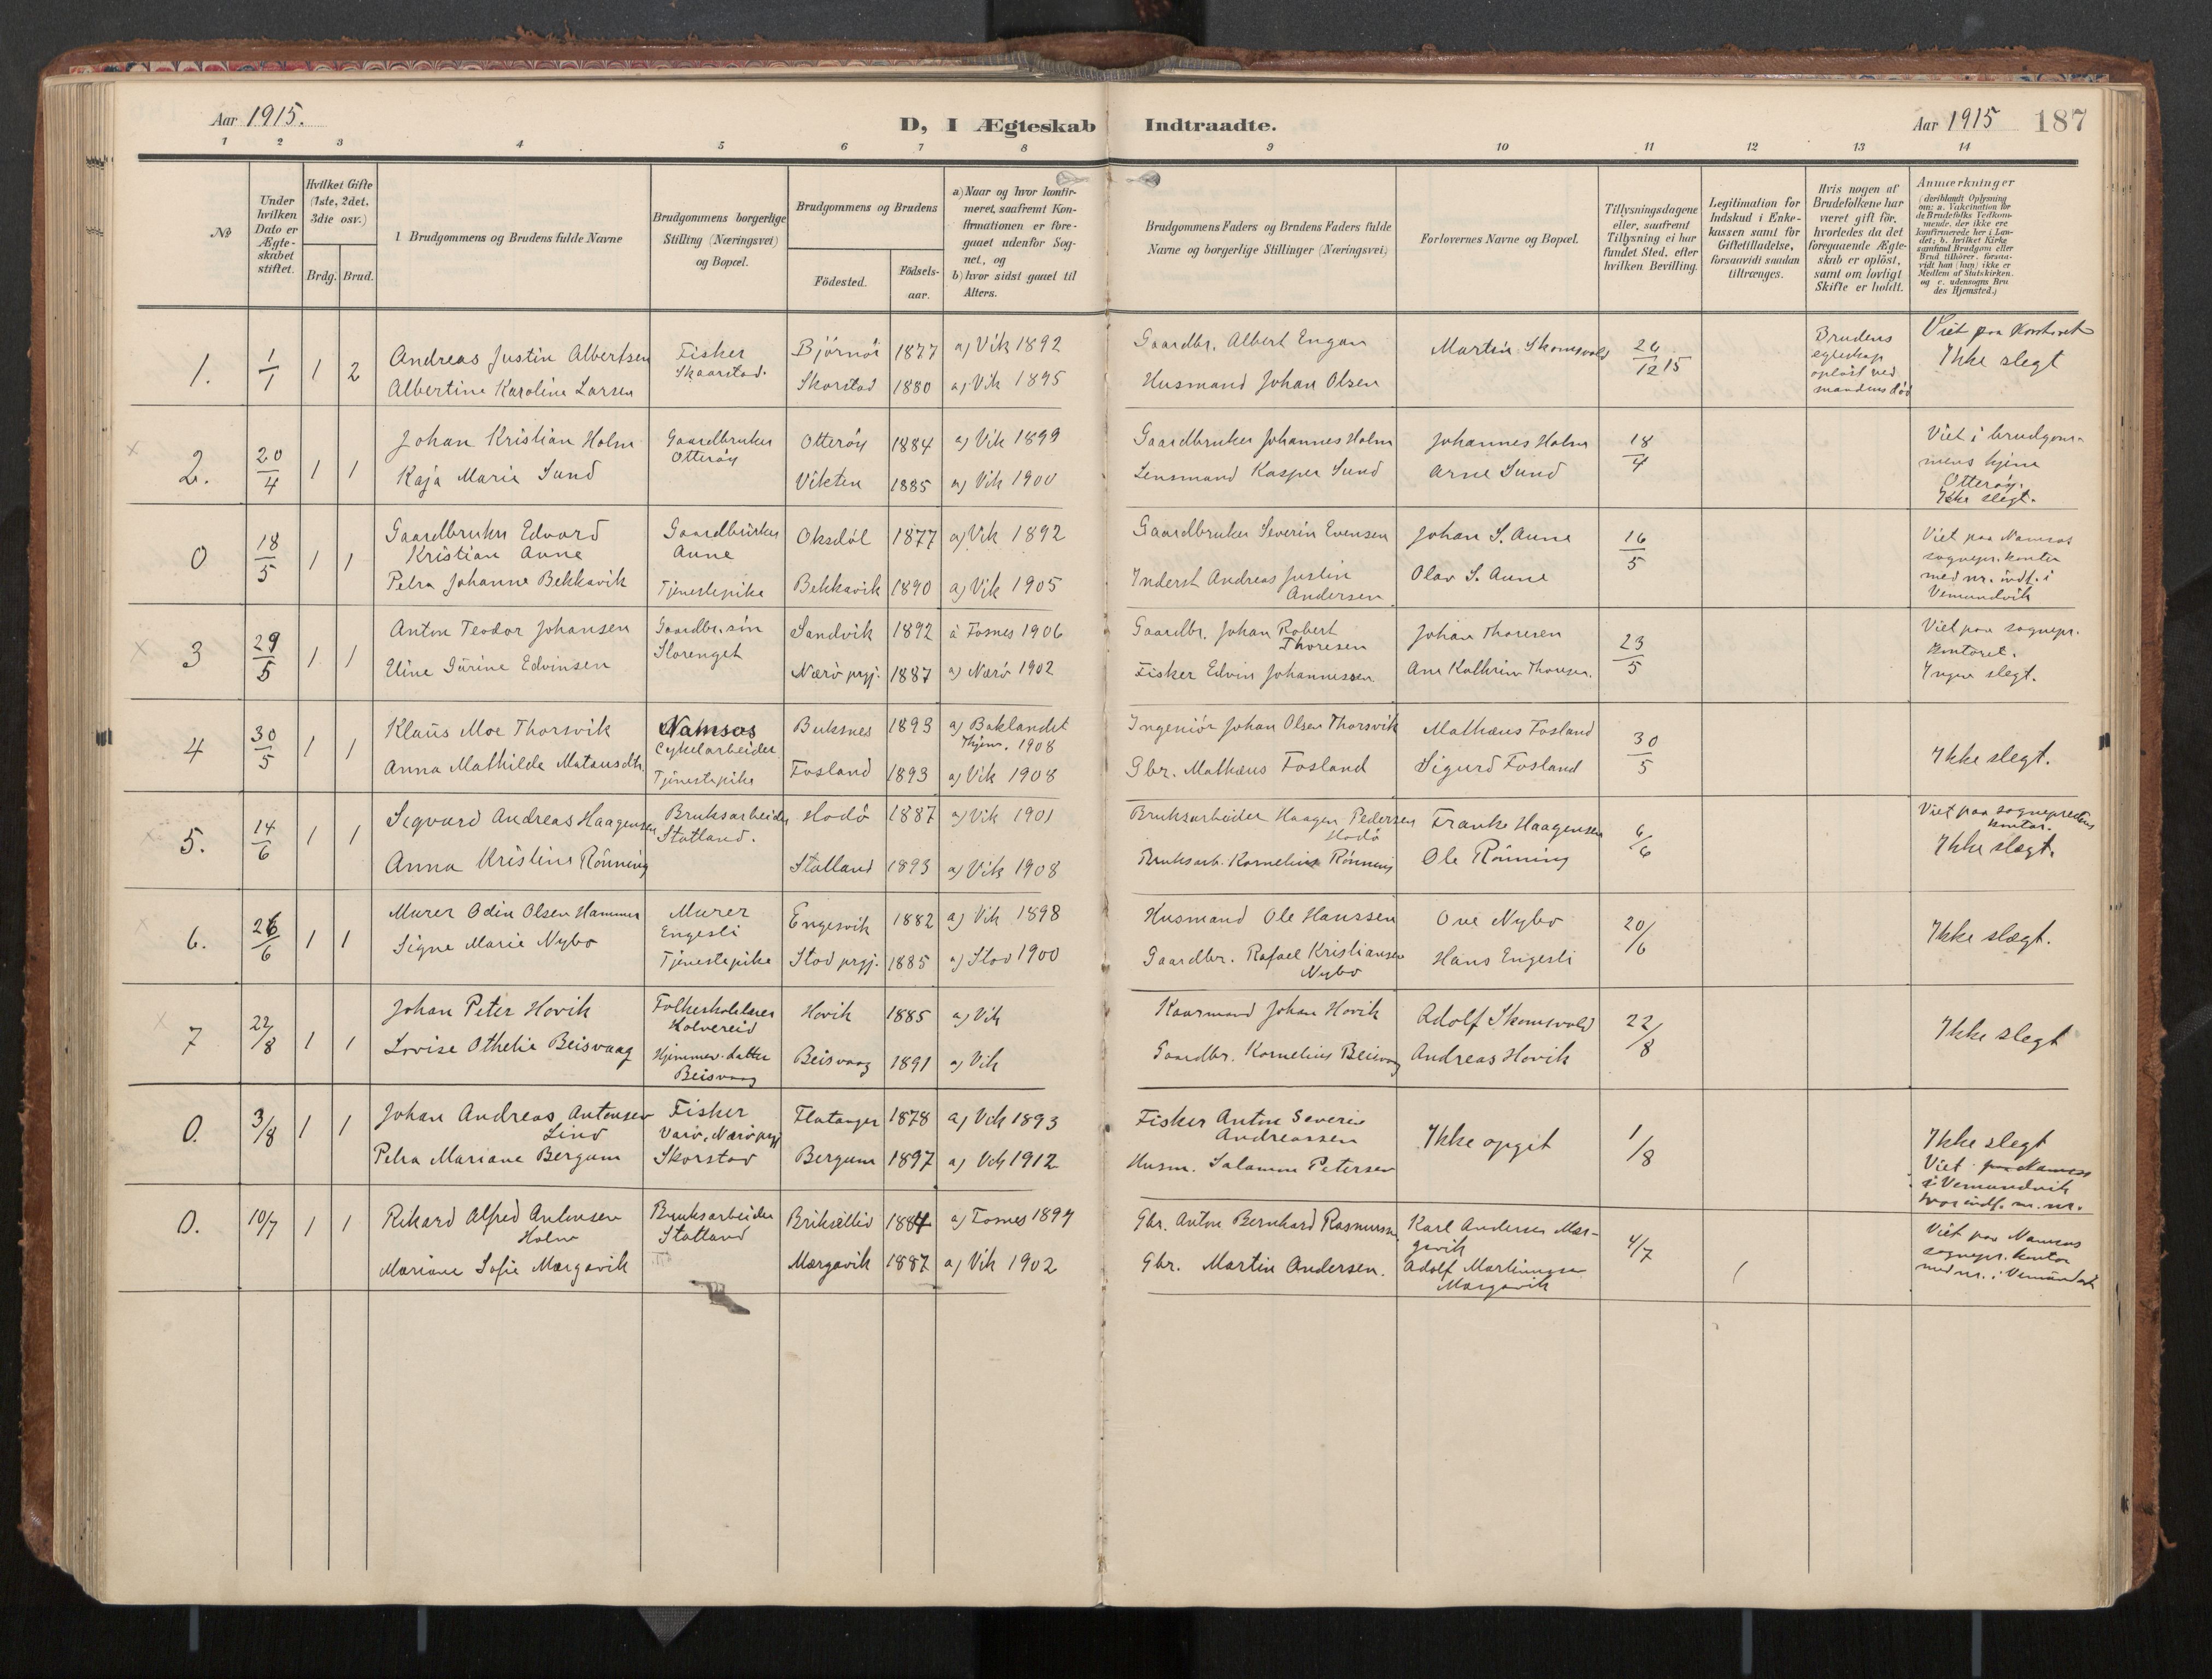 Aar 1915.
D, I Ægteskab Indtraadte.
Aar 1915 187
1 2 3 4 5 6 7 8 9 10 11 12 13 14
No
Under hvilken Dato er Ægteskabet stiftet.
Hvilket Gifte (1ste, 2det, 3die osv.)
Brdg. Brud.
1 Brudgommens og Brudens fulde Navne
Brudgommens borgerlige Stilling (Næringsvei) og Bopæl.
Brudgommens og Brudens
Födested.
Födsels-aar.
a) Naar og hvor konfirmeret, saafremt Konfirmationen er foregaaet udenför Sognet, og
b) hvor sidst gaaet til Alters.
Brudgommens Faders og Brudens Faders fulde Navne og borgerlige Stillinger (Næringsvei)
Forlovernes Navne og Bopæl.
Tillysningsdagene eller, saafremt Tillysning ei har fundet Sted, efter hvilken Bevilling.
Legitimation for Indskud i Enkekassen samt for Giftetilladelse, forsaavidt saadan tiltrænges.
Hvis nogen af Brudefolkene har været gift för, hvorledes da det foregaaende Ægteskab er oplöst, samt om lovligt Skifte er holdt.
Anmærkninger (deriblandt Oplysning om: a. Vakcination for de Brudefolks Vedkommende, der ikke ere konfirmerede her i Landet; b. hvilket Kirkesamfund Brudgom eller Brud tilhörer, forsaavidt han (hun) ikke er Medlem af Statskirken, og c. udensogns Brudes Hjemsted.)
1. 1/1 1 2 Andreas Justin Albertsen Fisker Skaarstad. Björnör 1877 a) Vik 1892 Gaardbr. Albert Engan Martin Skomsvold 26/12 15 Brudens egteskap oplöst ved mandens död Viet paa Kontoret
Albertine Karoline Larsen Skorstad 1880 a) Vik 1895 Husmand Johan Olsen Ikke slegt
2. 20/4 1 1 Johan Kristian Holm Gaardbruker Otteröy Otteröy 1884 a) Vik 1899 Gaardbruker Johannes Holm Johannes Holm 18/4 Viet i brudgommens hjem Otteröy.
Kaja Marie Sund Vikten 1885 a) Vik 1900 Lensmand Kasper Sund Arne Sund Ikke slegt.
0 18/5 1 1 Gaardbruker Edvard Kristian Aune Gaardbruker Aune Oksdöl 1877 a) Vik 1892 Gaardbruker Severin Evensen Johan S. Aune 16/5 Viet paa Namsos sognepr. kontor
Petra Johanne Bekkavik Tjenestepike Bekkavik 1890 a) Vik 1905 Inderst Andreas Justin Andersen Olav S. Aune med nr. indf. i Vemundvik
3 29/5 1 1 Anton Teodor Johansen Gaardbr.sön Storenget Sandvik 1892 a Fosnes 1906 Gaardbr. Johan Robert Thoresen Johan Thoresen 23/5 Viet paa sognepr. kontoret.
Eline Gurine Edvinsen Nærö prgj. 1887 a) Nærö 1902 Fisker Edvin Johannessen Ane Kathrine Thoresen. Ingen slegt.
4 30/5 1 1 Klaus Moe Thorsvik Namsos Cykelarbeider Buksnes 1893 a) Baklandet Thjem. 1908 Ingeniör Johan Olsen Thorsvik Mathæus Fosland 30/5
Anna Mathilde Mataus dtr. Tjenestepike Fosland 1893 a) Vik 1908 Gbr. Mathæus Fosland Sigurd Fosland Ikke slegt.
5. 14/6 1 1 Sigvard Andreas Haagensen Bruksarbeider Statland. Hodö 1887 a) Vik 1901 Bruksarbeider Haagen Pedersen Hodö Franke Haagensen 6/6 Viet paa sogneprestens kontor.
Anna Kristine Rönning Statland 1893 a) Vik 1908 Bruksarb. Kornelius Rönning Ole Rönning Ikke slægt.
6. 26/6 1 1 Murer Odin Olsen Hammer Murer Engesli Engesvik 1882 a) Vik 1898 Husmand Ole Hanssen Ove Nybo 20/6
Signe Marie Nybo Tjenestepike Stod prgj. 1885 a) Stod 1900 Gaardbr. Rafael Kristiansen Nybo Hans Engesli Ikke slægt.
7 22/8 1 1 Johan Peter Hovik Folkeskolelærer Kolvereid Hovik 1885 a) Vik Kaarmand Johan Hovik Adolf Skomsvold 22/8
Lovise Othelie Beisvaag Hjemmev. datter Beisvaag Beisvaag 1891 a) Vik Gaardbr. Kornelius Beisvaag Andreas Hovik Ikke slegt
0. 3/8 1 1 Johan Andreas Antonsen Lind Fisker Varö, Nærö prgj Flatanger 1878 a) Vik 1893 Fisker Anton Severin Andreassen Ikke opgit 1/8 Ikke slegt
Petra Mariane Bergum Skorstad Bergum 1897 a) Vik 1912 Husm. Salamon Petersen Viet paa Namsos i Vemundvik hvor indf. m. nr.
0. 10/7 1 1 Rikard Alfred Antonsen Holm Bruksarbeider Statland 1884 a) Fosnes 1899 Gbr. Anton Bernhard Rasmussen Karl Andersen Margavik 4/7 Viet paa Namsos sognepr. kontor
Mariane Sofie Margavik Margavik 1887 a) Vik 1902 Gbr. Martin Andersen. Adolf Martinussen Margavik med nr. i Vemundvik